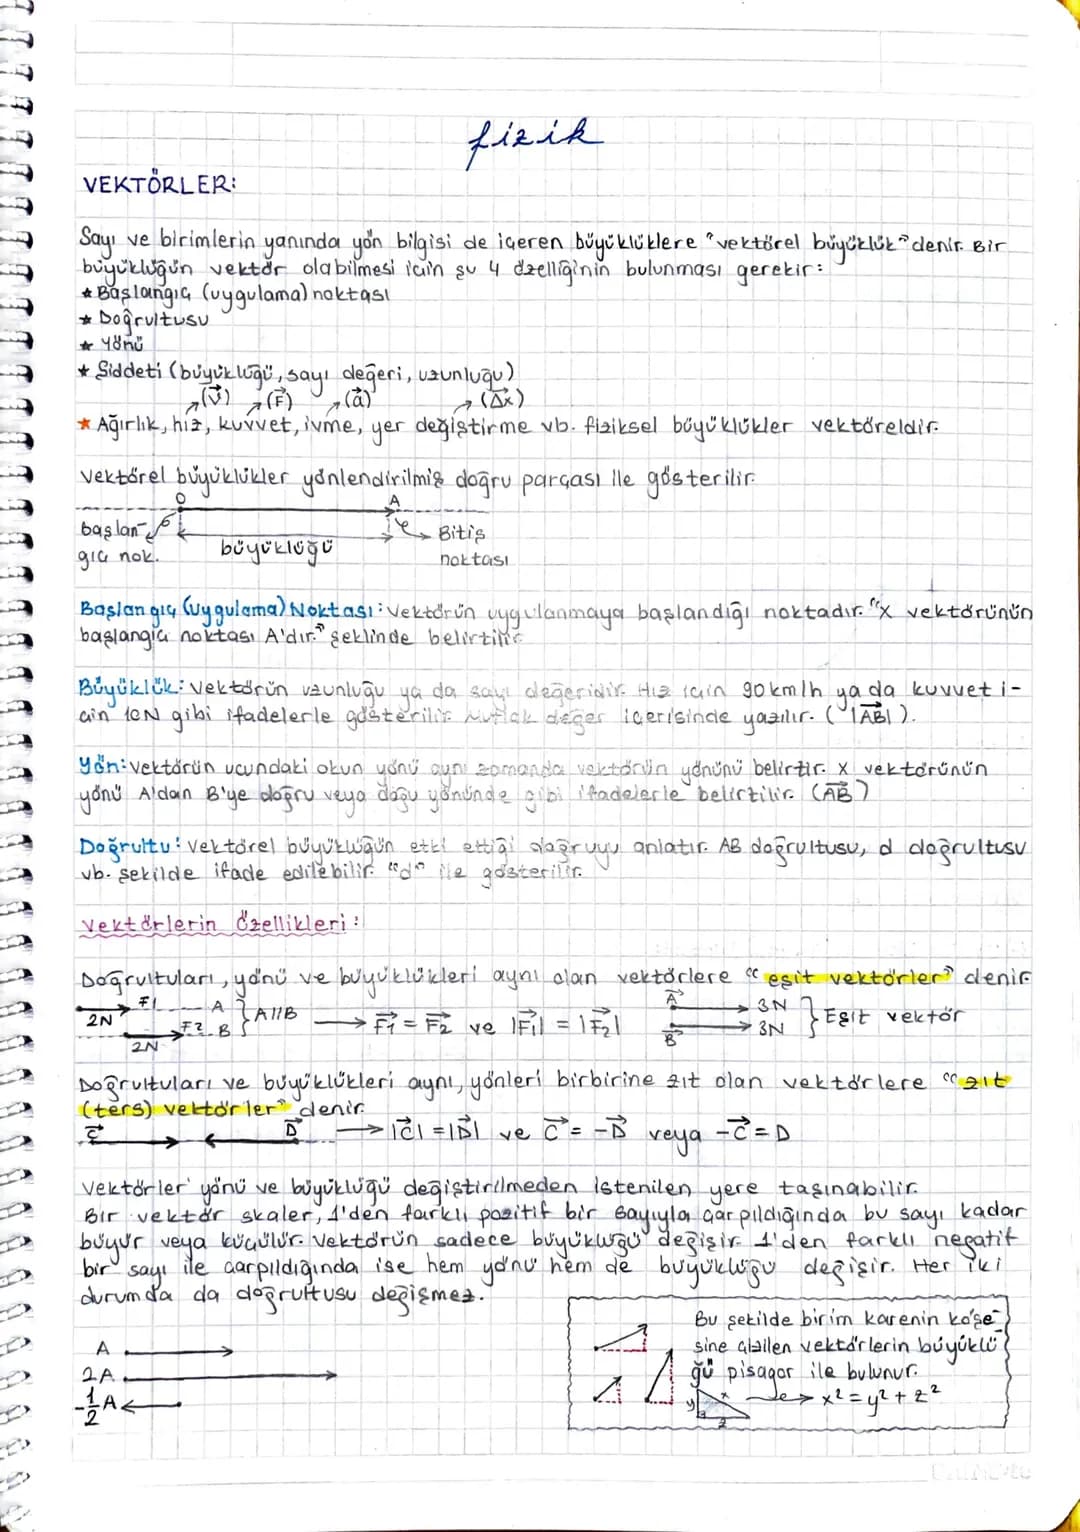 fizik
VEKTÖRLER:
Sayı ve birimlerin yanında yön bilgisi de içeren büyüklüklere "vektörel büyüklük" denir. Bir
büyüklüğün vektör olabilmesi için şu 4 özelliğinin bulunması gerekir:
★ Başlangıç (uygulama) noktası
★ Doğrultusu
★ Yönü
★ Şiddeti (büyüklüğü, sayı değeri, uzunluğu)
↗(v⃗) ↗(F⃗) ↗(a⃗) ↗(Δx⃗)
★ Ağırlık, hız, kuvvet, ivme, yer değiştirme vb. fiziksel büyüklükler vektöreldir.
Vektörel büyüklükler yönlendirilmiş doğru parçası ile gösterilir.
O A
başlan-
gıç nok.
büyüklüğü
Bitiş
noktası
Başlangıç (Uygulama) Noktası: Vektörün uygulanmaya başlandığı noktadır. "X vektörünün
başlangıç noktası A'dır." şeklinde belirtilir.
Büyüklük: Vektörün uzunluğu ya da sayı değeridir. Hız için 90km/h ya da kuvvet i-
çin 10N gibi ifadelerle gösterilir. Mutlak değer içerisinde yazılır. (|AB⃗|).
Yön: Vektörün ucundaki okun yönü aynı zamanda vektörün yönünü belirtir. X vektörünün
yönü A'dan B'ye doğru veya doğu yönünde gibi ifadelerle belirtilir. (AB⃗)
Doğrultu: Vektörel büyüklüğün etki ettiği doğruyu anlatır. AB doğrultusu, d doğrultusu
vb. şekilde ifade edilebilir. "d" ile gösterilir.
Vektörlerin Özellikleri:
Doğrultuları, yönü ve büyüklükleri aynı olan vektörlere "eşit vektörler" denir.
F1 A
2N
F2 B
2N
} A//B → F⃗₁ = F⃗₂ ve |F⃗₁| = |F⃗₂|
A⃗ → 3N
B⃗ → 3N
} Eşit vektör
Doğrultuları ve büyüklükleri aynı, yönleri birbirine zıt olan vektörlere "zıt
(ters) vektörler" denir.
C⃗ D⃗ → |C⃗| = |D⃗| ve C⃗ = -D⃗ veya -C⃗ = D
Vektörler yönü ve büyüklüğü değiştirilmeden istenilen yere taşınabilir.
Bir vektör skaler, 1'den farklı pozitif bir sayıyla çarpıldığında bu sayı kadar
büyür veya küçülür. Vektörün sadece büyüklüğü değişir. 1'den farklı negatif
bir sayı ile çarpıldığında ise hem yönü hem de büyüklüğü değişir. Her iki
durumda da doğrultusu değişmez.
A
2A
-1/2 A
Bu şekilde birim karenin köşe
sine çizilen vektörlerin büyüklü
ğü pisagor ile bulunur.
y x z → x² = y² + z²